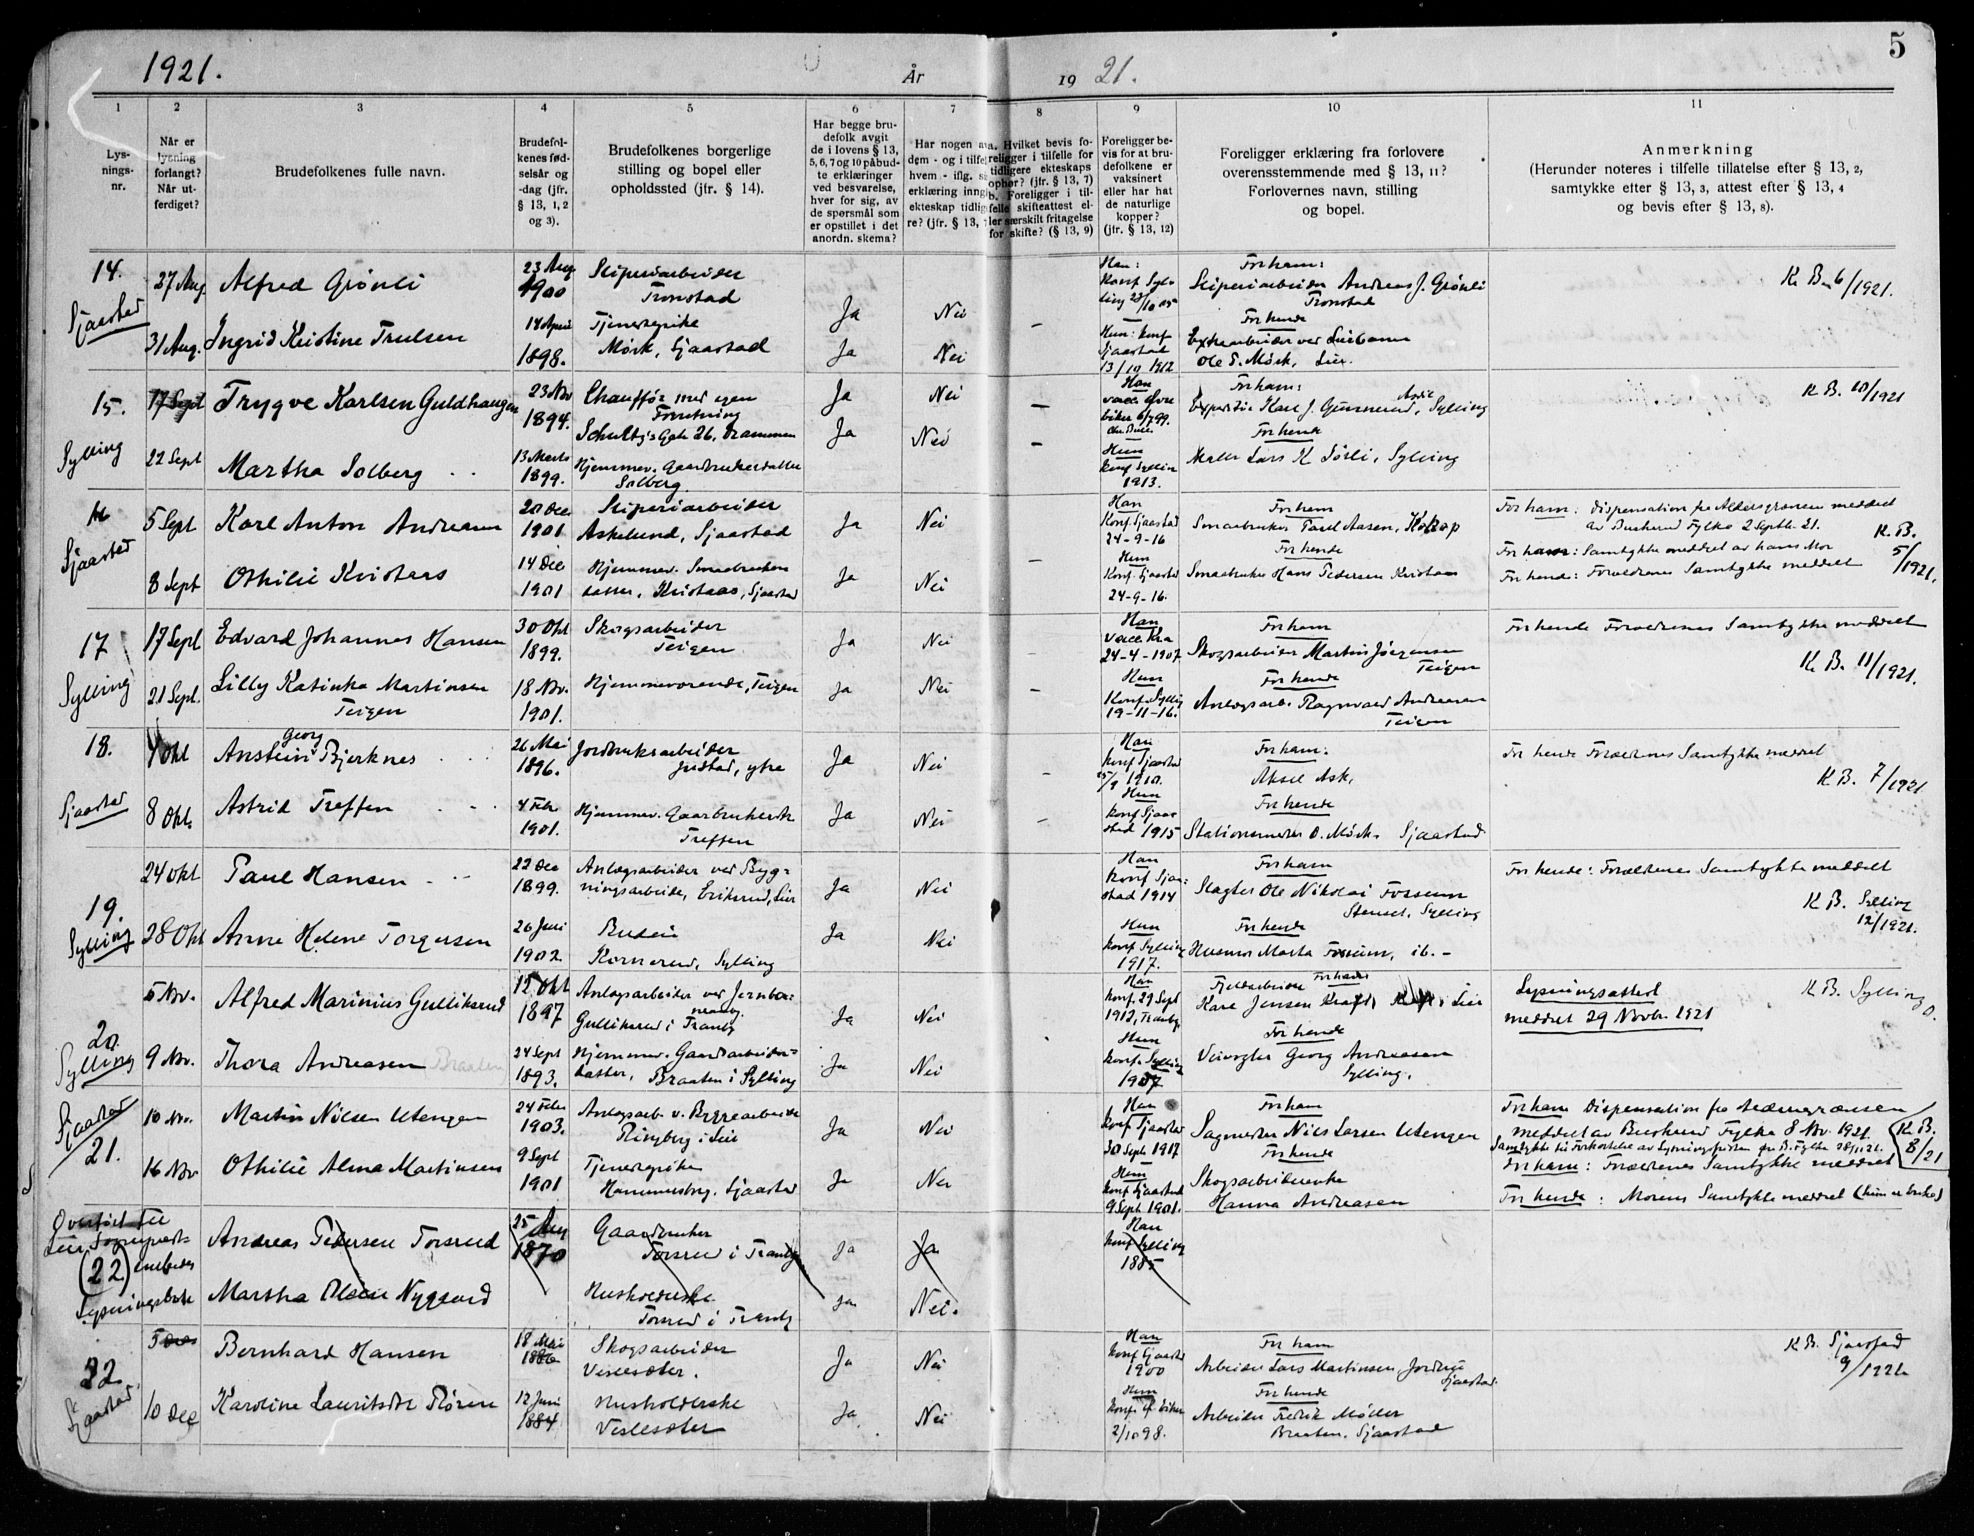 1921.
År
19 21.
5
1 2 3 4 5 6 7 8 9 10 11
Lys-
nings-
nr.
Når er
lysning
forlangt?
Når ut-
ferdiget?
Brudefolkenes fulle navn.
Brudefol-
kenes fød-
selsår og
-dag (jfr.
§ 13, 1, 2
og 3).
Brudefolkenes borgerlige
stilling og bopel eller
opholdssted (jfr. § 14).
Har begge bru-
defolk avgit
de i lovens § 13,
5, 6, 7 og 10 påbud-
te erklæringer
ved besvarelse,
hver for sig, av
de spørsmål som
er opstillet i det
anordn. skema?
Har nogen a
dem - og i tilfel
hvem - iflg. s
erklæring inng
ekteskap tidlig
re? (jfr. § 13,
a. Hvilket bevis fo-
religger i tilfelle for
tidligere ekteskaps
ophør? (jfr. § 13, 7)
b. Foreligger i til-
felle skifteattest el-
ler særskilt fritagelse
for skifte? (§ 13, 9)
Foreligger be-
vis for at bru-
defolkene er
vaksinert
eller har hat
de naturlige
kopper?
(jfr. § 13, 12)
Foreligger erklæring fra forlovere
overensstemmende med § 13, 11?
Forlovernes navn, stilling
og bopel.
Anmerkning
(Herunder noteres i tilfelle tillatelse efter § 13, 2,
samtykke efter § 13, 3, attest efter § 13, 4
og bevis efter § 13, 8).
14.
Sjaastad
27 Aug. Alfred Grønli
23 Aug.
1900
Sliperiarbeider
Tronstad
Ja Nei
Han:
Konf. Syl-
ling
For ham:
Sliperiarbeider Andreas J. Grønli
Tronstad
K. B. 6/1921.
31 Aug. Ingrid Kristine Trulsen
14 April
1898.
Tjenestepike
Mørk, Sjaastad
Ja Nei –
Hun: Konf
Sjaastad
13/10 1912
For hende
Ole E. Mørk, Lier.
15.
Sylling
17 Sept Trygve Karlsen Guldhaugen
23 Nov
1894.
Chauffør med egen
Forretning
Schultz's Gate 26, Drammen
Ja Nei –
Han
For ham:
Karl J. Gunnerud, Sylling
K. B. 10/1921
22 Sept Martha Solberg
13 Marts
1899.
Hjemmev. Gaardbrukerdatter
Solberg
Ja Nei –
Hun
Konf Sylling
1913.
For hende
Maler Lars K Sørli, Sylling
16
Sjaastad
5 Sept Karl Anton Andreasen
20 Dec
1901
Sliperiarbeider
Askelund, Sjaastad
Ja Nei
Han
Konf. Sjaastad
24-9-16
For ham
Smaabruker Paul Aasen,
For ham: Dispensation fra Aldersgrænsen meddelt
av Buskerud Fylke 2 Septb. 21.
For ham: Samtykke meddelt av hans Mor
For hende: Forældrenes Samtykke meddelt
K. B.
5/1921.
8 Sept Othilie Kvistaas
14 Dec
1901
Hjemmev. Smaabruker
datter, Kvistaas, Sjaastad
Ja Nei –
Hun
Konf. Sjaastad
24-9-16.
For hende
Smaabruker Hans Pedersen Kvistaas
17
Sylling
17 Sept Edvard Johannes Hansen
30 Okt
1899.
Skogsarbeider
Teigen
Ja Nei –
Han
Vacc. Kra
24-4-1907
For ham
Skogsarbeider Martin Jørgensen
Teigen
For hende Forældrenes Samtykke meddelt
K. B. 11/1921.
21 Sept. Lilly Katinka Martinsen
Teigen
18 Nov.
1901.
Hjemmeværende, Teigen
Ja Nei –
Hun
Konf. Sylling
19-11-16.
For hende
Anlægsarb. Ragnvald Andreasen
Teigen
18.
Sjaastad
4 Okt Anstein Georg Bjerknes
26 Mai
1896.
Jordbruksarbeider
Justad, ytre
Ja Nei –
Han
Konf Sjaastad
25/9 1910.
For ham:
Aksel Ask,
For hende Forældrenes Samtykke meddelt
K. B. 7/1921
8 Okt. Astrid Treffen
4 Febr
1901.
Hjemmev. Gaardbrukerdtr
Treffen
Ja Nei –
Hun
Konf Sjaa-
stad 1915
For hende
Stationsmester O. Mørk. Sjaastad
19.
Sylling
24 Okt Paul Hansen
22 Dec
1899.
Anlægsarbeider ved Byg-
ningsarbeide, Eriksrud, Lier
Ja Nei
Han
Konf Sjaa-
stad 1914
For ham
Slagter Ole Nikolai Fossum
Stenset, Sylling
For hende: Forældrenes Samtykke meddelt
K. B. Sylling
12/1921.
28 Okt Anne Helene Torgersen
26 Juni
1902
Budeie
Kornerud, Sylling
Ja Nei
Hun
Konf Sylling
1917.
For hende
Husmor Marta Fossum, ib. –
20.
Sylling
5 Nov. Alfred Marinius Gulliksrud
12 Okt
1897
Anlægsarbeider ved Jernba-
neanlg.
Gulliksrud i Tranby
Ja Nei
Han
Konf. 29 Sept
1912, Tranby
For ham
Fjeldarbeider
Karl Jensen Kraft, i Lier
Lysningsattest
meddelt 29 Novbr. 1921
K. B. Sylling
9 Nov. Thora Andreasen Braaten
24 Sept
1893.
Hjemmev. Gaardarbeider-
datter, Braaten i Sylling
Ja Nei
Hun
Konf. Sylling
1907
For hende
Veivogter Georg Andreasen
Sylling.
Sjaastad
21.
10 Nov. Martin Nilsen Utengen
24 Febr
1903.
Anlægsarb. v. Byggearbeide
Ringberg i Lier
Ja Nei
Han
Konf Sjaastad
30 Sept. 1917
For ham
Sagmester Nils Larsen Utengen
For ham Dispensation fra Aldersgrænsen
meddelt av Buskerud Fylke 8 Nov. 1921.
Samtykke til Forkortelse av Lysningsfristen fra B. Fylke
For ham: Forældrenes Samtykke meddelt
For hende: Morens Samtykke meddelt (hun er enke)
K. B.
8/21
16 Nov Othilie Alma Martinsen
9 Sept
1901
Tjenestepike
Sjaastad
Ja Nei
Hun
Konf Sjaastad
9 Sept. 1901.
For hende
Skogsarbeiderenke
Hanna Andreasen
Overført til
Lier Sogneprests
(22) embedes
Lysningsbok
Andreas Pedersen Torsrud
25 Aug
1870
Gaardbruker
Torsrud i Tranby
Ja Ja
Han
Konf Sylling
1885
Martha Olsen Nygaard
Husholderske
Torsrud i Tranby
Ja Nei.
22
Sjaastad
5 Dec Bernhard Hansen
18 Mai
1886
Skogsarbeider
Veslesæter.
Ja Nei
Han
Konf Sjaastad
1900
For ham
Arbeider Lars Martinsen,
Sjaastad.
K B. Sjaastad
9/1921
10 Dec Karoline Lauritsdtr Røren
12 Juni
1884
Husholderske
Veslesæter
Ja Nei
Hun
2/10 98.
For hende
Arbeider Fredrik Møller
Braaten. Sjaastad